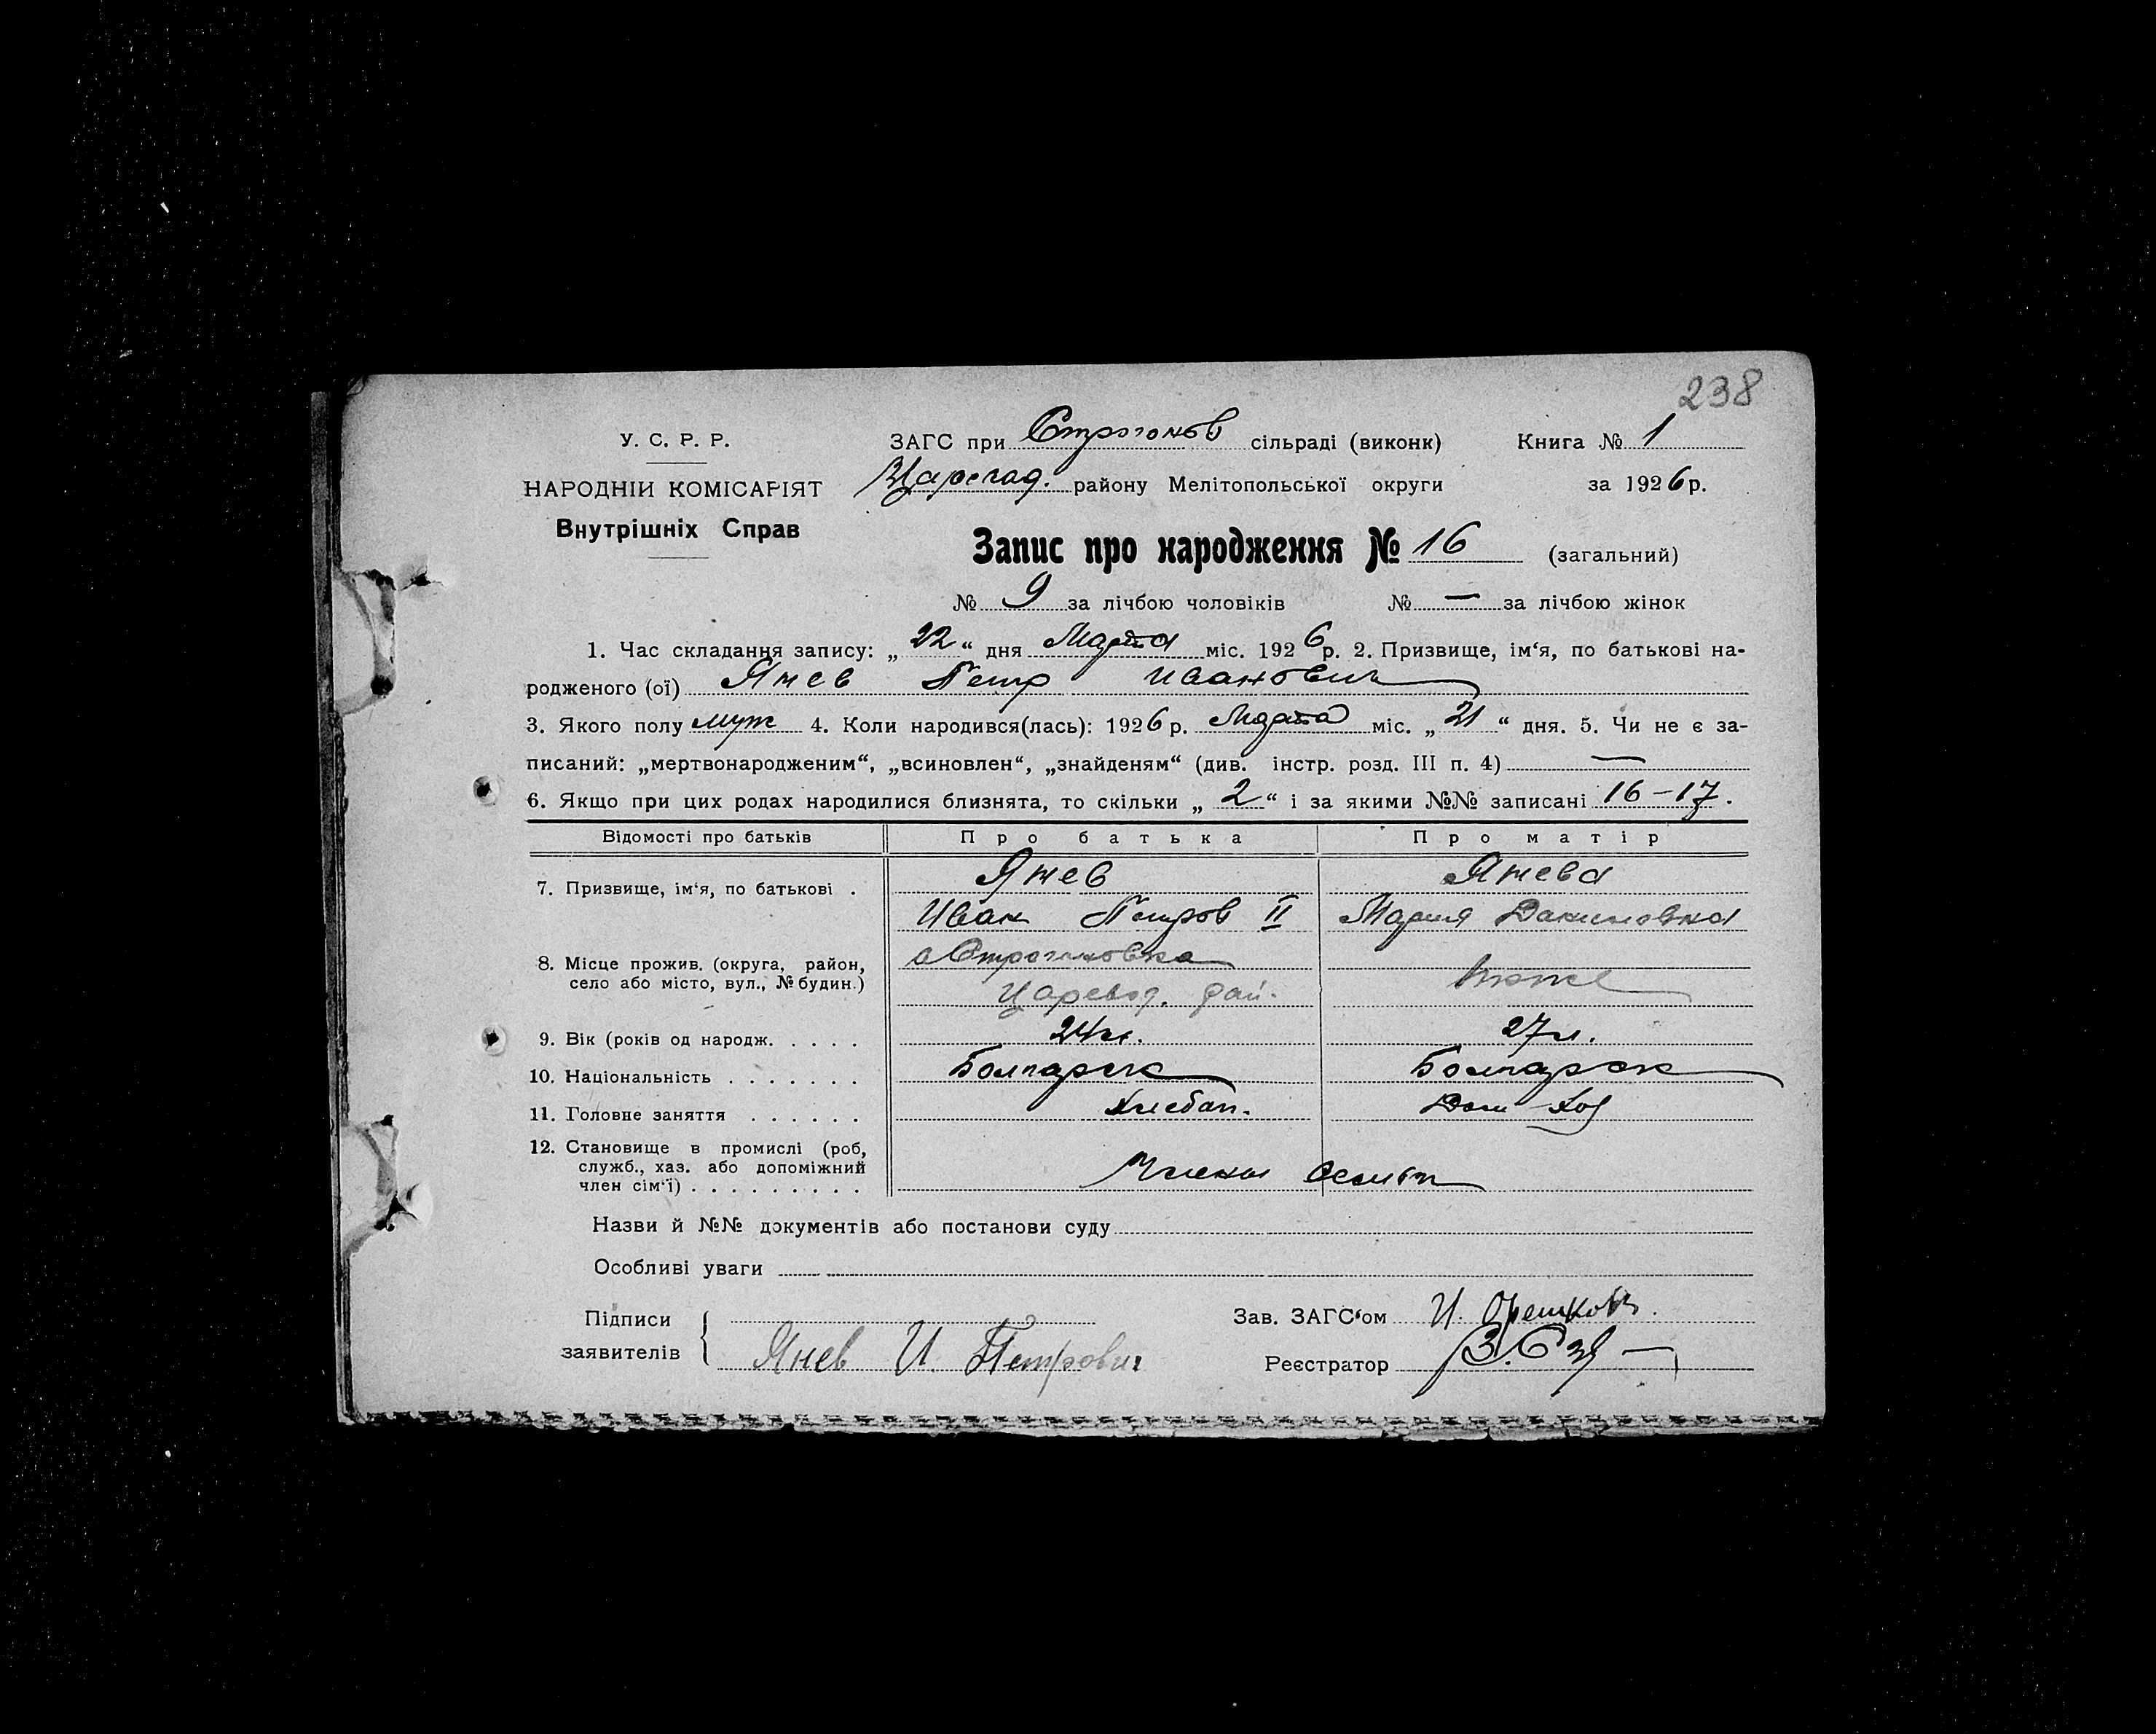 238
У. С. Р. Р.
НАРОДНІЙ КОМІСАРІЯТ
Внутрішніх Справ
ЗАГС при Строганов сільраді (виконк) Книга № 1
району Мелітопольської округи за 1926 р.
Запис про народження № 16 (загальний)
№ 9 за лічбою чоловіків № — за лічбою жінок
1. Час складання запису: „22“ дня Марта міс. 1926 р. 2. Призвище, ім‘я, по батькові на-
родженого (ої) Янев Петр Иванович
3. Якого полу муж 4. Коли народився(лась): 1926 р. Марта міс. „21“ дня. 5. Чи не є за-
писаний: „мертвонародженим“, „всиновлен“, „знайденям“ (див. інстр. розд. III п. 4) —
6. Якщо при цих родах народилися близнята, то скільки „2“ і за якими №№ записані 16-17.
Відомості про батьків Про батька Про матір
7. Призвище, ім‘я, по батькові . Янев Янева
Иван Петров II Мария
8. Місце прожив. (округа, район, Строгановка
село або місто, вул., № будин.) Царевод. рай. тоже
9. Вік (років од народж. . . . . 24 л. 27 л.
10. Національність . . . . . . . Болгарск Болгарск
11. Головне заняття . . . . . . Хлебоп. Дом Хоз
12. Становище в промислі (роб,
служб., хаз. або допоміжний
член сім‘ї) . . . . . . . . . Члены
Назви й №№ документів або постанови суду
Особливі уваги
Підписи
заявителів Янев И Петрович
Зав. ЗАГС‘ом И. Орешков
Реєстратор